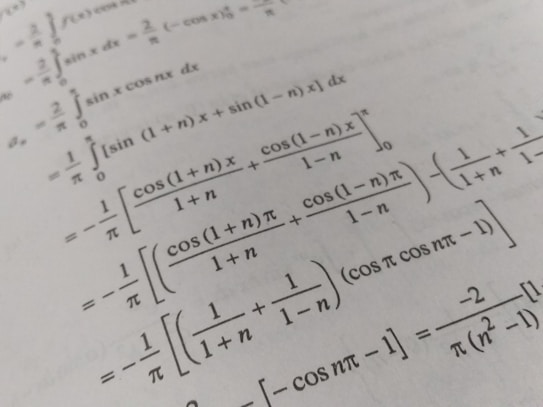 f(x)
= 2/π ∫₀ f(x) cos
= 2/π ∫₀^π sin x dx = 2/π (−cos x)₀^π =
aₙ = 2/π ∫₀^π sin x cos nx dx
= 1/π ∫₀^π [sin (1 + n) x + sin (1 − n) x] dx
= − 1/π [cos (1 + n) x / 1 + n + cos (1 − n) x / 1 − n]₀^π
= − 1/π [(cos (1 + n) π / 1 + n + cos (1 − n) π / 1 − n) − (1 / 1 + n + 1 / 1 −
= − 1/π [(1 / 1 + n + 1 / 1 − n) (cos π cos nπ − 1)]
[− cos nπ − 1] = −2 / π (n² − 1) [1